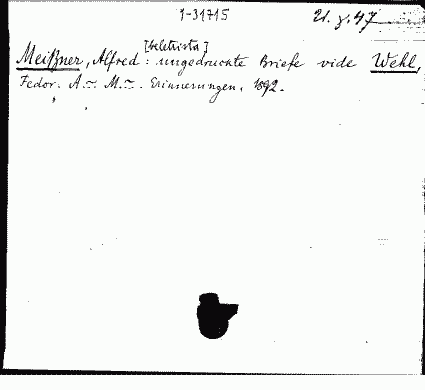 1-31715
21. z. 47
[beletrista]
Meißner, Alfred : ungedruckte Briefe vide Wehl,
Fedor. A.~ M.~. Erinnerungen, 1892.